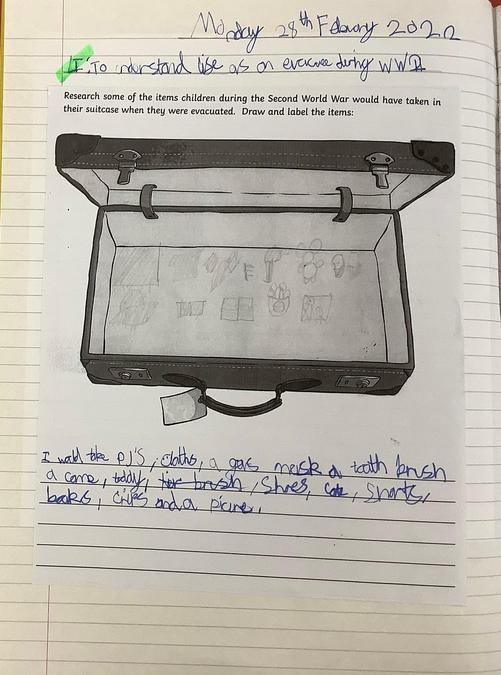 Monday 28th Febuary 2022
LI: To understand life as an evacuee during WWII
Research some of the items children during the Second World War would have taken in
their suitcase when they were evacuated. Draw and label the items:
I wald take PJ'S, cloths, a gas mask a tooth brush
a come, teddy, brush, Shoes, Shorts,
books, crips and a picture.